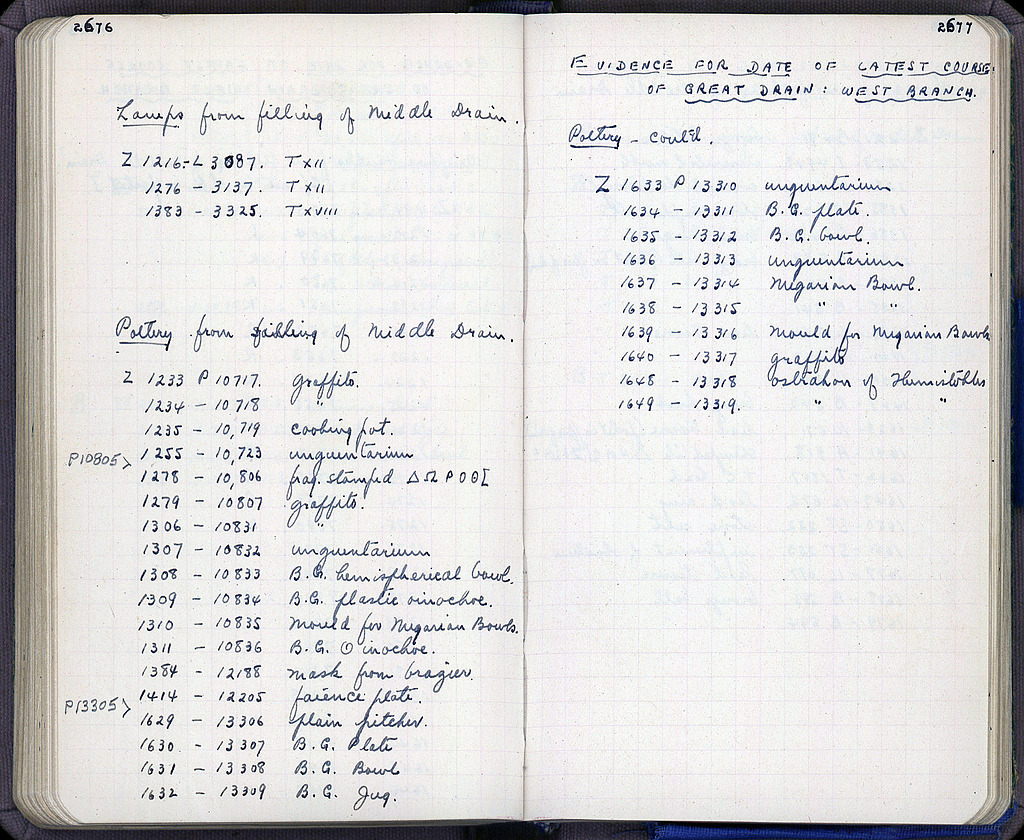 2676
Lamps from filling of Middle Drain.
Z 1216 - L 3087. T XII
1276 - 3137. T XII
1383 - 3325. T XVIII
Pottery from filling of Middle Drain.
Z 1233 P 10717. graffito.
1234 - 10718 "
1235 - 10,719 cooking pot.
P10805>
1255 - 10,723 unguentarium
1278 - 10,806 frag. stamped ΔΩΡΟΘ[
1279 - 10807 graffito.
1306 - 10831 "
1307 - 10832 unguentarium
1308 - 10833 B.G. hemispherical bowl.
1309 - 10834 B.G. plastic oinochoe.
1310 - 10835 Mould for Megarian Bowls.
1311 - 10836 B.G. Oinochoe.
1384 - 12188 mask from brazier.
1414 - 12205 faience plate.
P13305>
1629 - 13306 plain pitcher.
1630 - 13307 B.G. Plate
1631 - 13308 B.G. Bowl
1632 - 13309 B.G. Jug.
2677
EVIDENCE FOR DATE OF LATEST COURSE
OF GREAT DRAIN: WEST BRANCH.
Pottery - cont'd.
Z 1633 P 13310 unguentarium
1634 - 13311 B.G. plate.
1635 - 13312 B.G. bowl.
1636 - 13313 unguentarium
1637 - 13314 Megarian Bowl.
1638 - 13315 " "
1639 - 13316 Mould for Megarian Bowls
1640 - 13317 graffito
1648 - 13318 ostrakon of Themistokles
1649 - 13319. " "